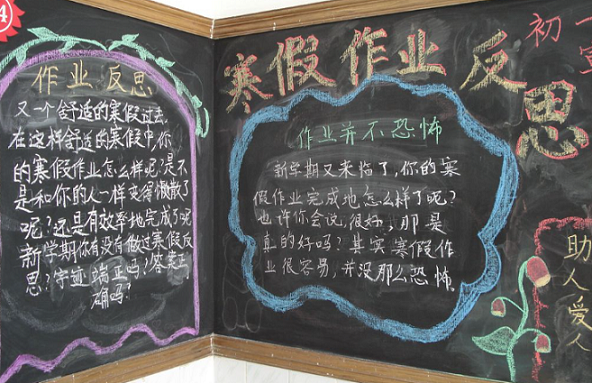 4
作业反思
又一个舒适的寒假过去,
在这样舒适的寒假中,你
的寒假作业怎么样呢?是不
是和你的人一样变得懒散了
呢?还是有效率地完成了呢
新学期你有没有做过寒假反
思?字迹端正吗?答案正
确吗?
寒假作业反思
作业并不恐怖
新学期又来临了,你的寒
假作业完成地怎么样了呢?
也许你会说,很好,那是
真的好吗?其实寒假作
业很容易,并没那么恐怖。
初一
助人爱人